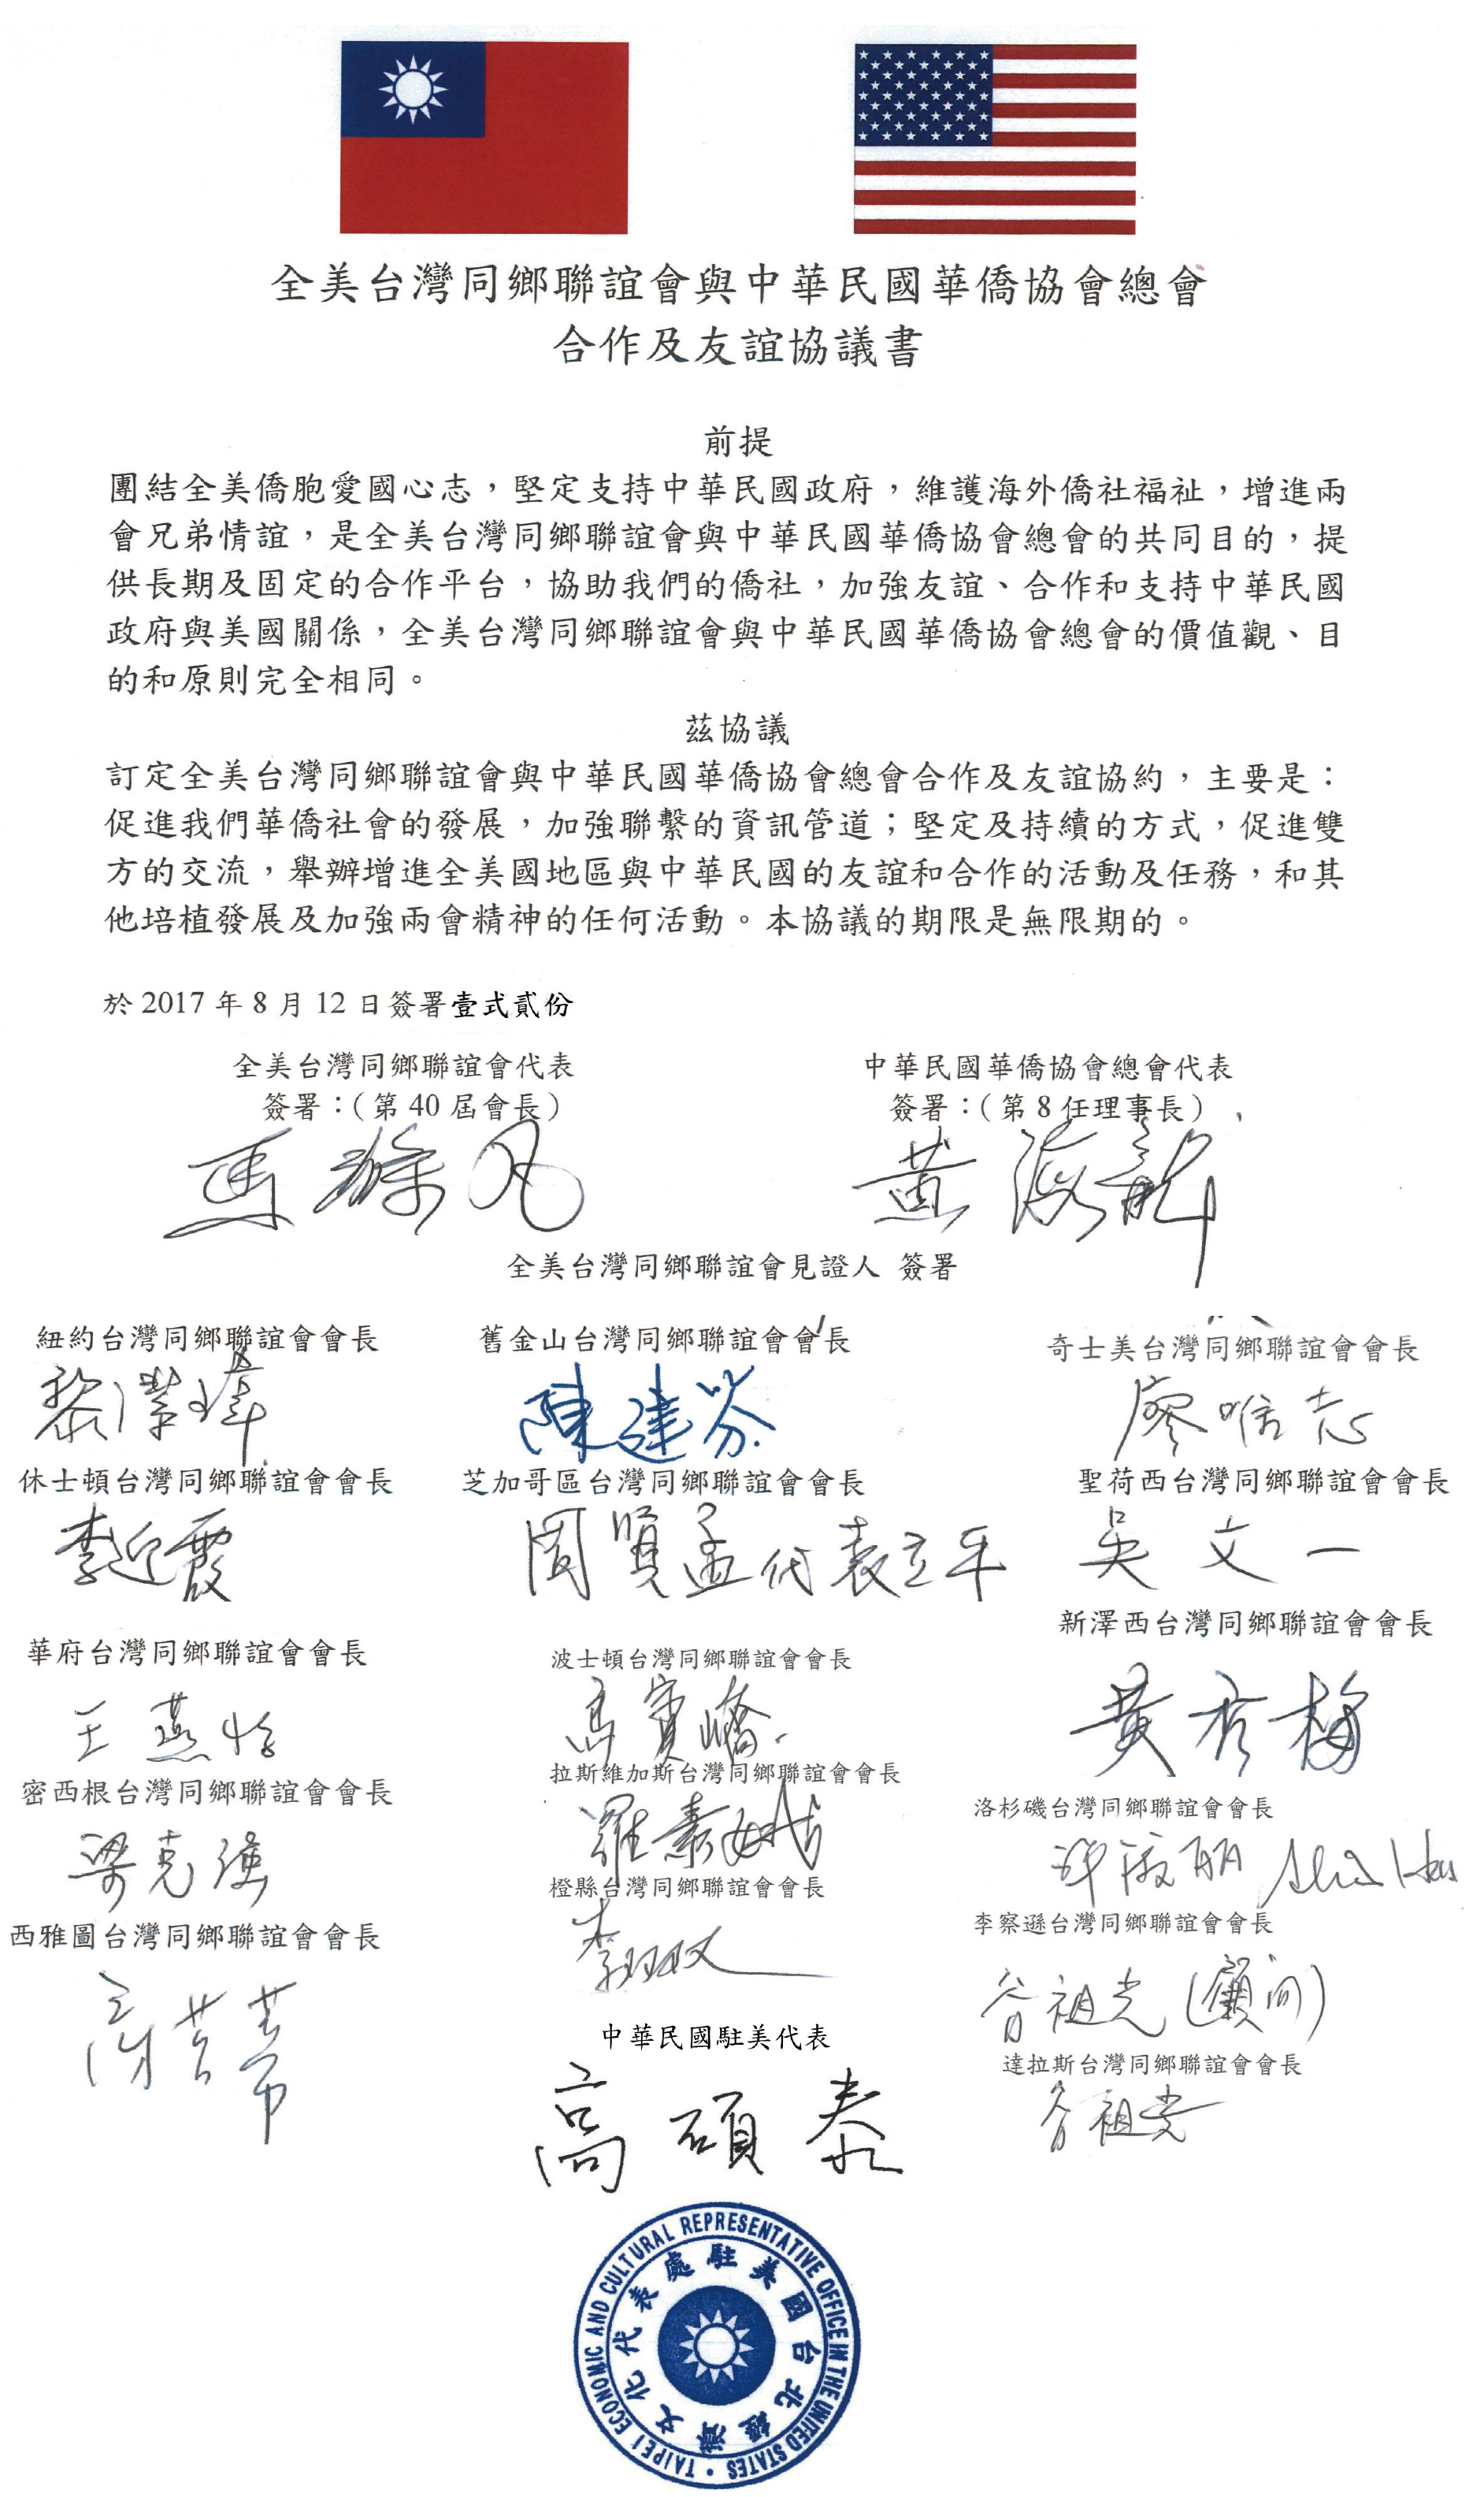 全美台灣同鄉聯誼會與中華民國華僑協會總會
合作及友誼協議書
前提
團結全美僑胞愛國心志，堅定支持中華民國政府，維護海外僑社福祉，增進兩
會兄弟情誼，是全美台灣同鄉聯誼會與中華民國華僑協會總會的共同目的，提
供長期及固定的合作平台，協助我們的僑社，加強友誼、合作和支持中華民國
政府與美國關係，全美台灣同鄉聯誼會與中華民國華僑協會總會的價值觀、目
的和原則完全相同。
茲協議
訂定全美台灣同鄉聯誼會與中華民國華僑協會總會合作及友誼協約，主要是：
促進我們華僑社會的發展，加強聯繫的資訊管道；堅定及持續的方式，促進雙
方的交流，舉辦增進全美國地區與中華民國的友誼和合作的活動及任務，和其
他培植發展及加強兩會精神的任何活動。本協議的期限是無限期的。
於 2017 年 8 月 12 日簽署壹式貳份
全美台灣同鄉聯誼會代表
簽署：（第 40 屆會長）
馬滌凡
中華民國華僑協會總會代表
簽署：（第 8 任理事長）
黃海龍
全美台灣同鄉聯誼會見證人 簽署
紐約台灣同鄉聯誼會會長
舊金山台灣同鄉聯誼會會長
陳建芬
奇士美台灣同鄉聯誼會會長
廖唯志
休士頓台灣同鄉聯誼會會長
李迎霞
芝加哥區台灣同鄉聯誼會會長
周賢孟代 袁立平
聖荷西台灣同鄉聯誼會會長
吳文一
華府台灣同鄉聯誼會會長
王燕怡
波士頓台灣同鄉聯誼會會長
新澤西台灣同鄉聯誼會會長
黃秀梅
密西根台灣同鄉聯誼會會長
梁克強
拉斯維加斯台灣同鄉聯誼會會長
洛杉磯台灣同鄉聯誼會會長
橙縣台灣同鄉聯誼會會長
李察遜台灣同鄉聯誼會會長
谷祖光（顧问）
西雅圖台灣同鄉聯誼會會長
達拉斯台灣同鄉聯誼會會長
谷祖光
中華民國駐美代表
高碩泰
TAIPEI ECONOMIC AND CULTURAL REPRESENTATIVE OFFICE IN THE UNITED STATES
駐美國台北經濟文化代表處